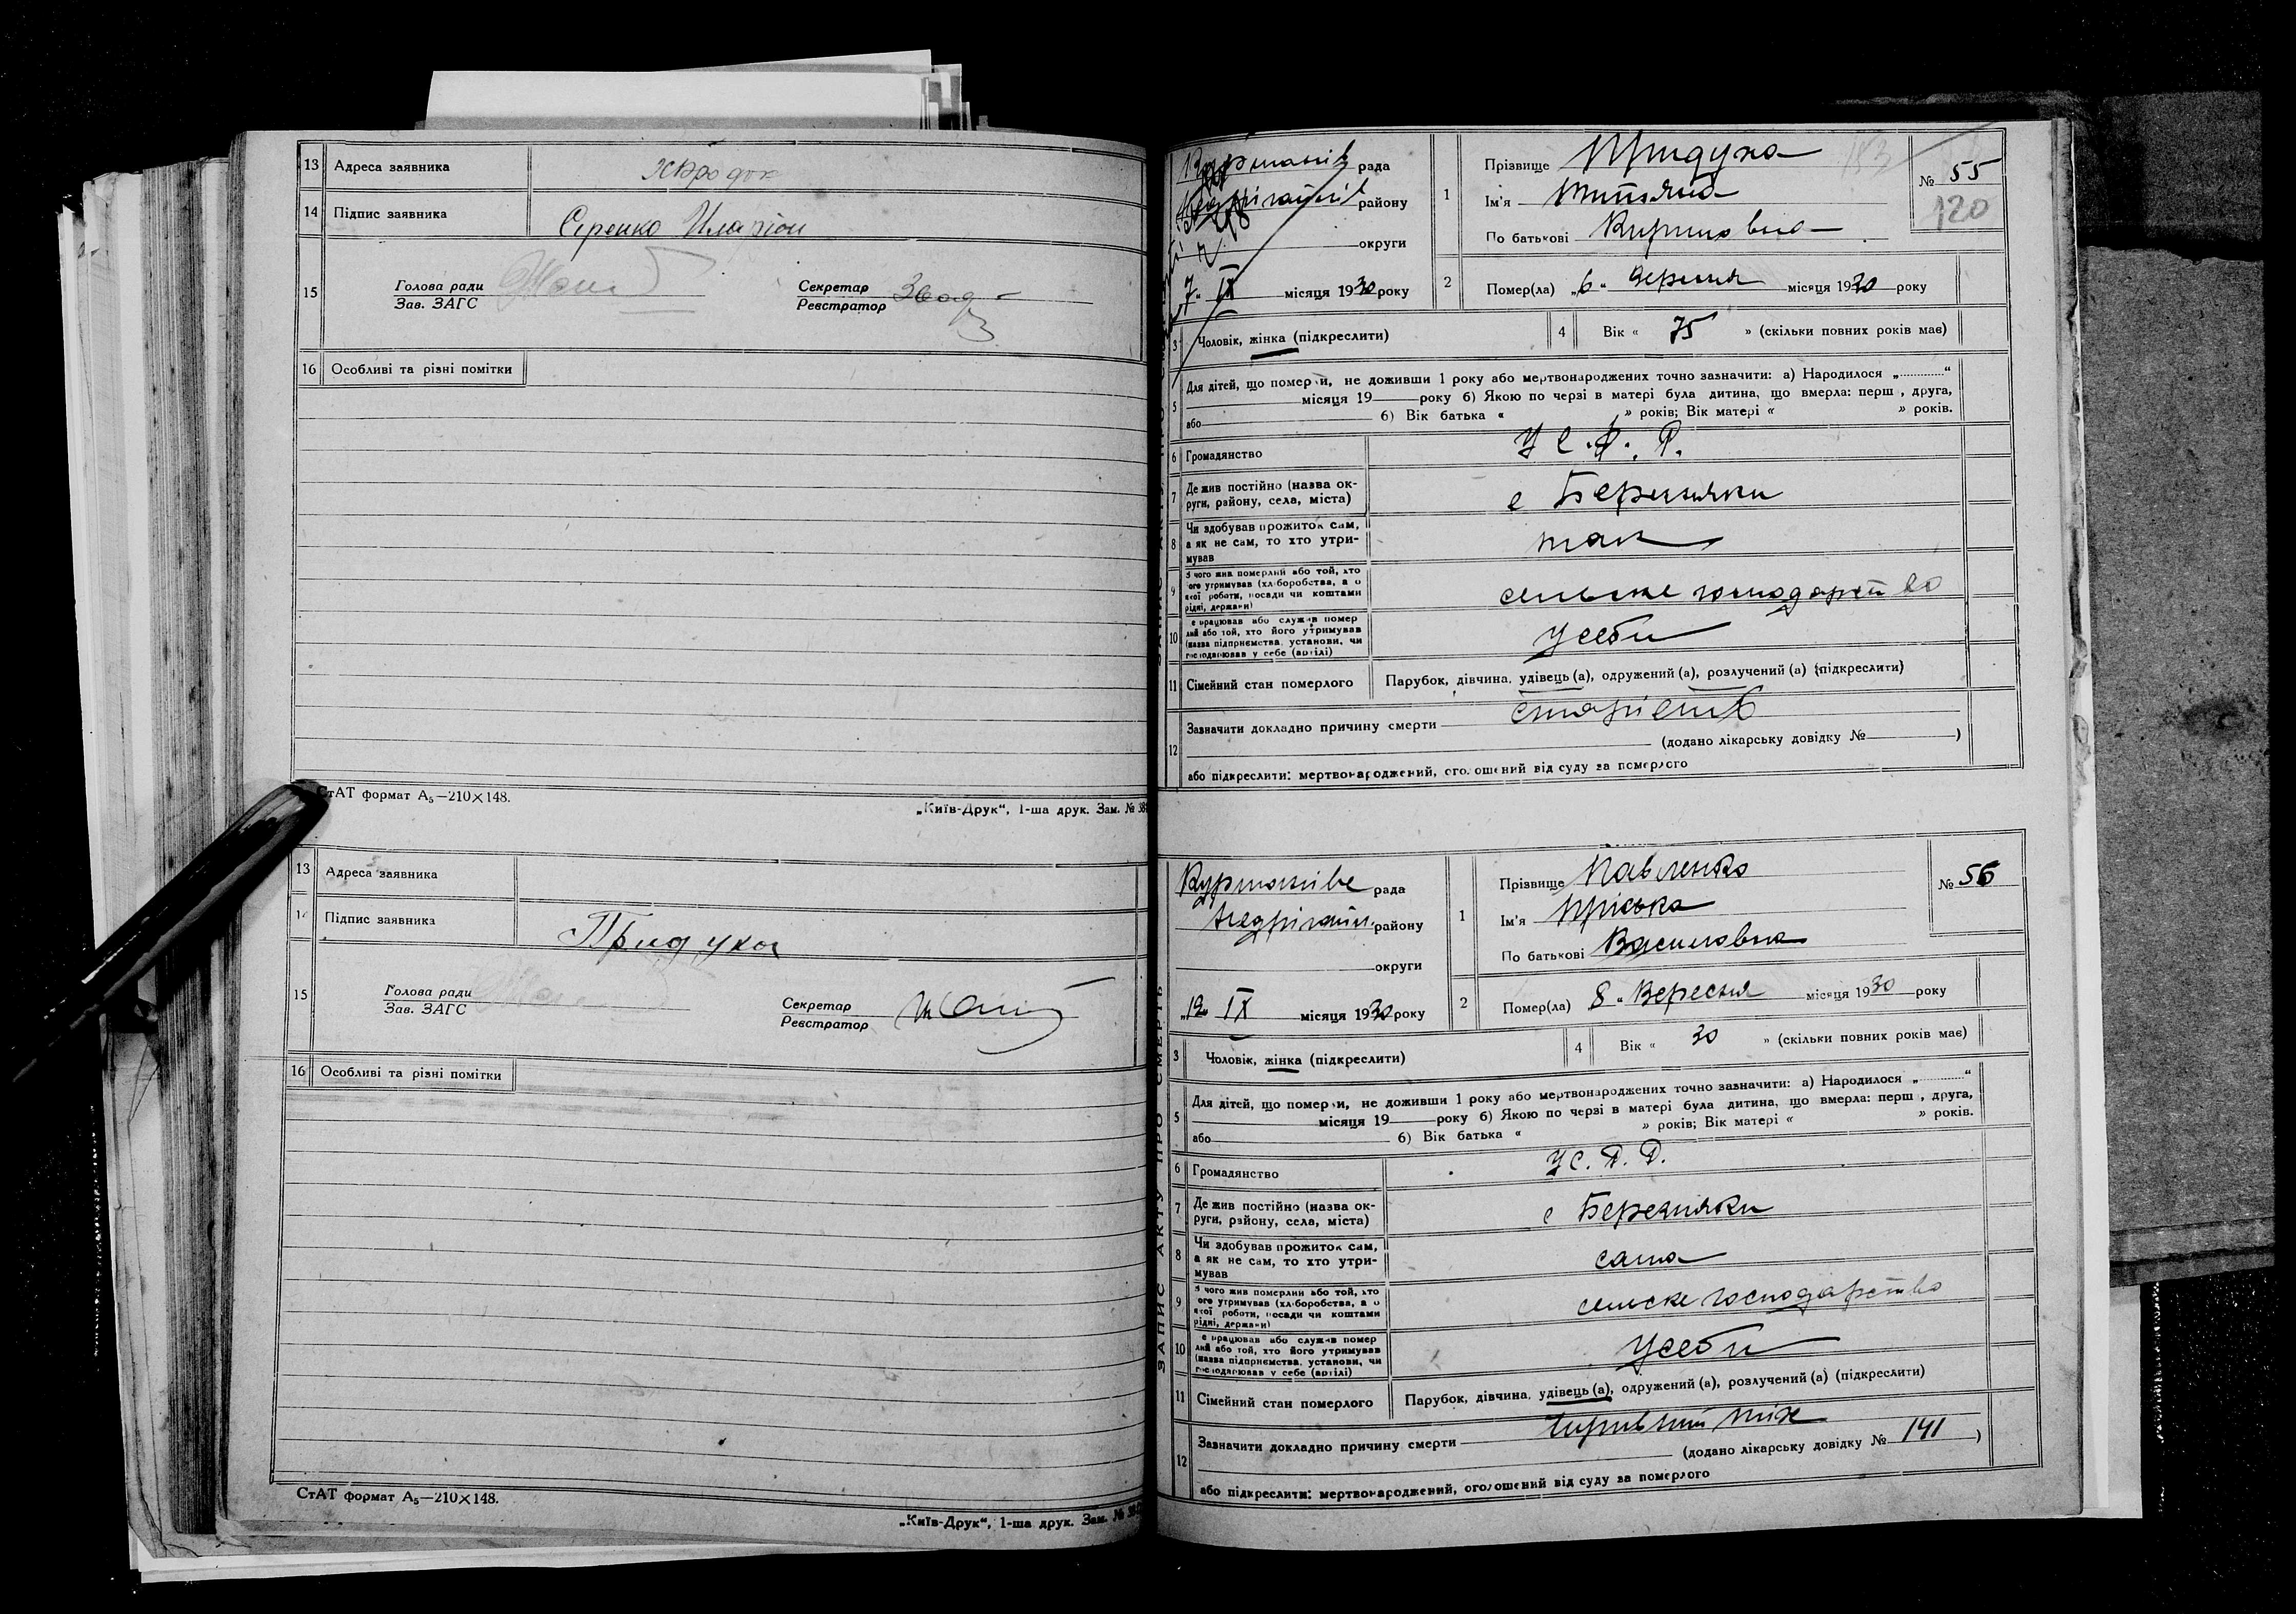 13 Адреса заявника
14 Підпис заявника Сіренко Иларіон
15 Голова ради
Зав. ЗАГС
Секретар
Реєстратор
16 Особливі та різні помітки
СтАТ формат А₅—210×148.
„Київ-Друк“, 1-ша друк. Зам. №
13 Адреса заявника
14 Підпис заявника Придуха
15 Голова ради
Зав. ЗАГС
Секретар
Реєстратор
16 Особливі та різні помітки
СтАТ формат А₅—210×148.
„Київ-Друк“, 1-ша друк. Зам. №
рада
району
округи
7 IX місяця 1930 року
1 Прізвище Придуха
Ім'я Титяна
По батькові Кириловна
№ 55
120
2 Помер(ла) „6“ Вересня місяця 1930 року
3 Чоловік, жінка (підкреслити)
4 Вік « 75 » (скільки повних років має)
5 Для дітей, що померли, не доживши 1 року або мертвонароджених точно зазначити: а) Народилося „............“
місяця 19 року б) Якою по черзі в матері була дитина, що вмерла: перш , друга,
або б) Вік батька « » років; Вік матері « » років.
6 Громадянство У С. Р. Р.
7 Де жив постійно (назва округи, району, села, міста) с Березняки
8 Чи здобував прожиток сам, а як не сам, то хто утримував так
9 З чого жив померлий або той, хто його утримував (хліборобства, а о якої роботи, посади чи коштами рідні, держави) сельске господарство
10 е працював або служив помер лий або той, хто його утримував (назва підприємства, установи, чи господарював у себе (артілі) У себи
11 Сімейний стан померлого Парубок, дівчина, удівець (а), одружений (а), розлучений (а) (підкреслити)
12 Зазначити докладно причину смерти старість
(додано лікарську довідку № )
або підкреслити: мертвонароджений, оголошений від суду за померлого
ЗАПИС АКТУ ПРО СМЕРТЬ
Курманіве рада
Недрігайл. району
округи
„12“ IX місяця 1930 року
1 Прізвище Павленко
Ім'я Пріська
По батькові Василовна
№ 56
2 Помер(ла) 8 „ Вересня місяця 1930 року
3 Чоловік, жінка (підкреслити)
4 Вік « 30 » (скільки повних років має)
5 Для дітей, що померли, не доживши 1 року або мертвонароджених точно зазначити: а) Народилося „............“
місяця 19 року б) Якою по черзі в матері була дитина, що вмерла: перш , друга,
або б) Вік батька « » років; Вік матері « » років.
6 Громадянство УС. Р. Р.
7 Де жив постійно (назва округи, району, села, міста) с Березняки
8 Чи здобував прожиток сам, а як не сам, то хто утримував сама
9 З чого жив померлий або той, хто його утримував (хліборобства, а о якої роботи, посади чи коштами рідні, держави) сельске господарство
10 е працював або служив помер лий або той, хто його утримував (назва підприємства, установи, чи господарював у себе (артілі) У себи
11 Сімейний стан померлого Парубок, дівчина, удівець (а), одружений (а), розлучений (а) (підкреслити)
12 Зазначити докладно причину смерти
(додано лікарську довідку № 141 )
або підкреслити: мертвонароджений, оголошений від суду за померлого